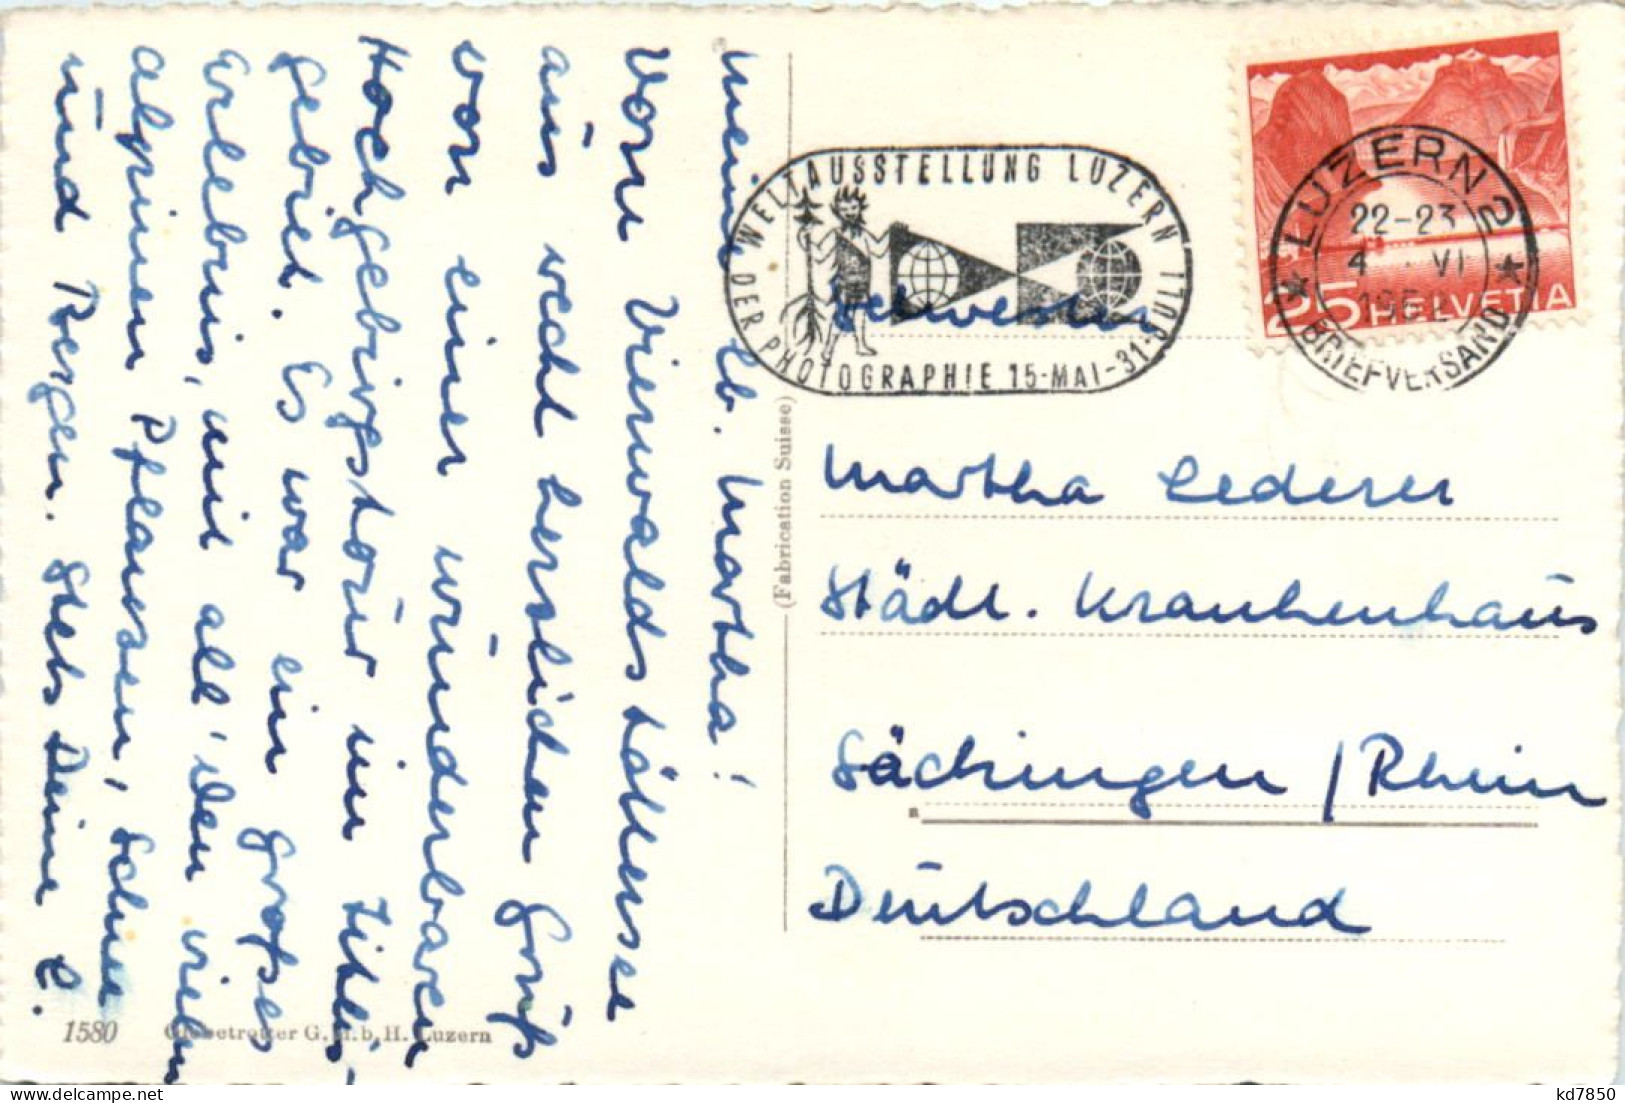 Mein lb. Martha!
Vom Vierwaldstättersee
aus recht herzlichen Gruß
von einer wunderbaren
Hochgebirgstour im Titlis-
gebiet. Es war ein großes
Erlebnis, mit all' den vielen
alpinen Pflanzen, Schnee
und Bergen. Stets Deine E.
1580 Globetrotter G.m.b.H. Luzern
(Fabrication Suisse)
WELTAUSSTELLUNG LUZERN
DER PHOTOGRAPHIE 15-MAI-31-JULI
LUZERN 2
22-23
4 VI
BRIEFVERSAND
25 HELVETIA
Schwester
Martha Lederer
Städt. Krankenhaus
Säckingen / Rhein
Deutschland
kd7850